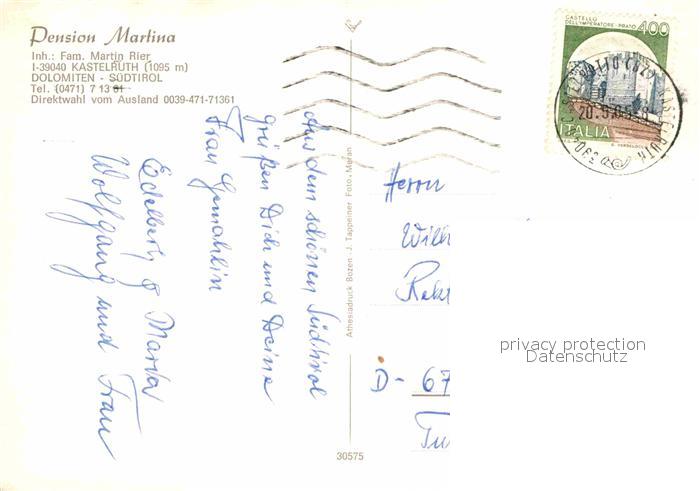 Pension Martina
Inh.: Fam. Martin Rier
I-39040 KASTELRUTH (1095 m)
DOLOMITEN - SÜDTIROL
Tel. (0471) 7 13 61
Direktwahl vom Ausland 0039-471-71361
Aus dem schönen Südtirol
grüßen Dich und Deine
Frau Gemahlin
Edelbert & Marta
Wolfgang und Frau
Athesiadruck Bozen - J. Tappeiner Foto, Meran
30575
CASTELLO
DELL'IMPERATORE - PRATO
400
ITALIA
KASTELRUTH
Herrn
D- 67
privacy protection
Datenschutz